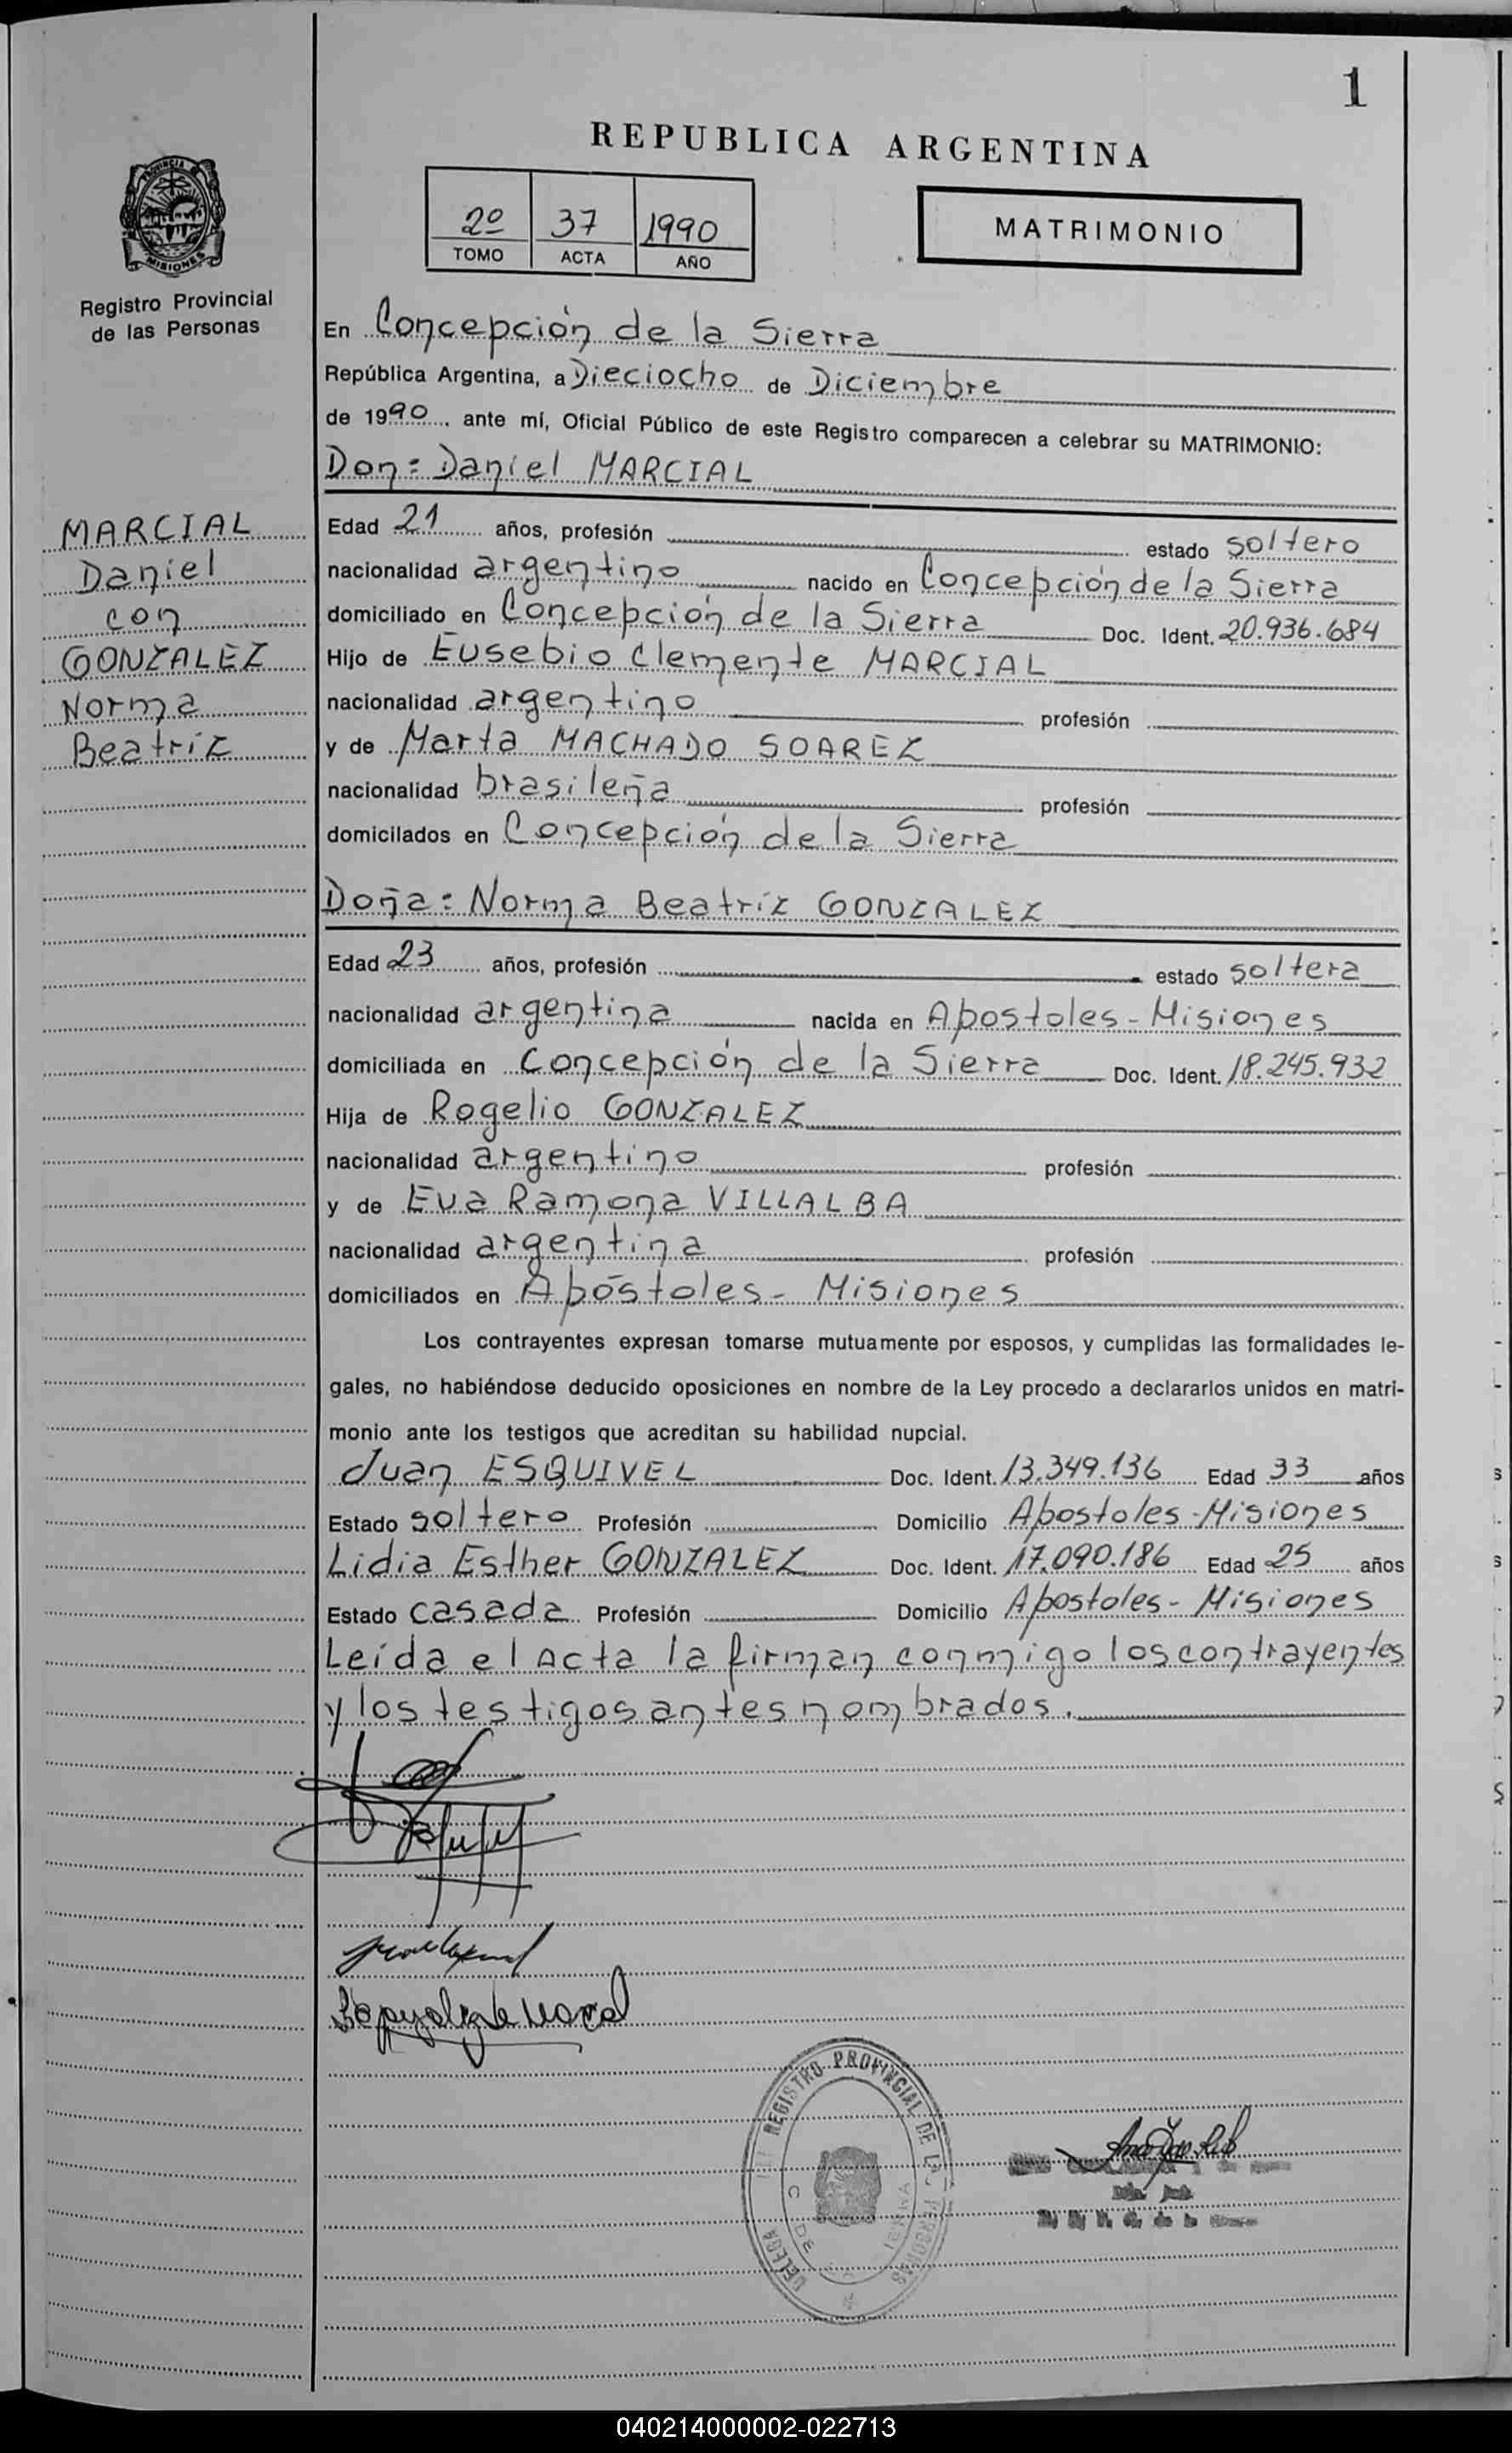 1
REPUBLICA ARGENTINA
PROVINCIA
MISIONES
Registro Provincial
de las Personas
2º 37 1990
TOMO ACTA AÑO
MATRIMONIO
En Concepción de la Sierra
República Argentina, a Dieciocho de Diciembre
de 1990, ante mí, Oficial Público de este Registro comparecen a celebrar su MATRIMONIO:
Don: Daniel MARCIAL
MARCIAL
Daniel
con
GONZALEZ
Norma
Beatríz
Edad 21 años, profesión estado soltero
nacionalidad argentino nacido en Concepción de la Sierra
domiciliado en Concepción de la Sierra Doc. Ident. 20.936.684
Hijo de Eusebio Clemente MARCIAL
nacionalidad argentino profesión
y de Marta MACHADO SOAREZ
nacionalidad brasileña profesión
domicilados en Concepción de la Sierra
Doña: Norma Beatríz GONZALEZ
Edad 23 años, profesión estado soltera
nacionalidad argentina nacida en Apostoles - Misiones
domiciliada en Concepción de la Sierra Doc. Ident. 18.245.932
Hija de Rogelio GONZALEZ
nacionalidad argentino profesión
y de Eva Ramona VILLALBA
nacionalidad argentina profesión
domiciliados en Apóstoles - Misiones
Los contrayentes expresan tomarse mutuamente por esposos, y cumplidas las formalidades le-
gales, no habiéndose deducido oposiciones en nombre de la Ley procedo a declararlos unidos en matri-
monio ante los testigos que acreditan su habilidad nupcial.
Juan ESQUIVEL Doc. Ident. 13.349.136 Edad 33 años
Estado soltero Profesión Domicilio Apostoles - Misiones
Lidia Esther GONZALEZ Doc. Ident. 17.090.186 Edad 25 años
Estado casada Profesión Domicilio Apostoles - Misiones
Leída el Acta la firman conmigo los contrayentes
y los testigos antes nombrados.
REGISTRO PROVINCIAL DE LAS PERSONAS
040214000002-022713